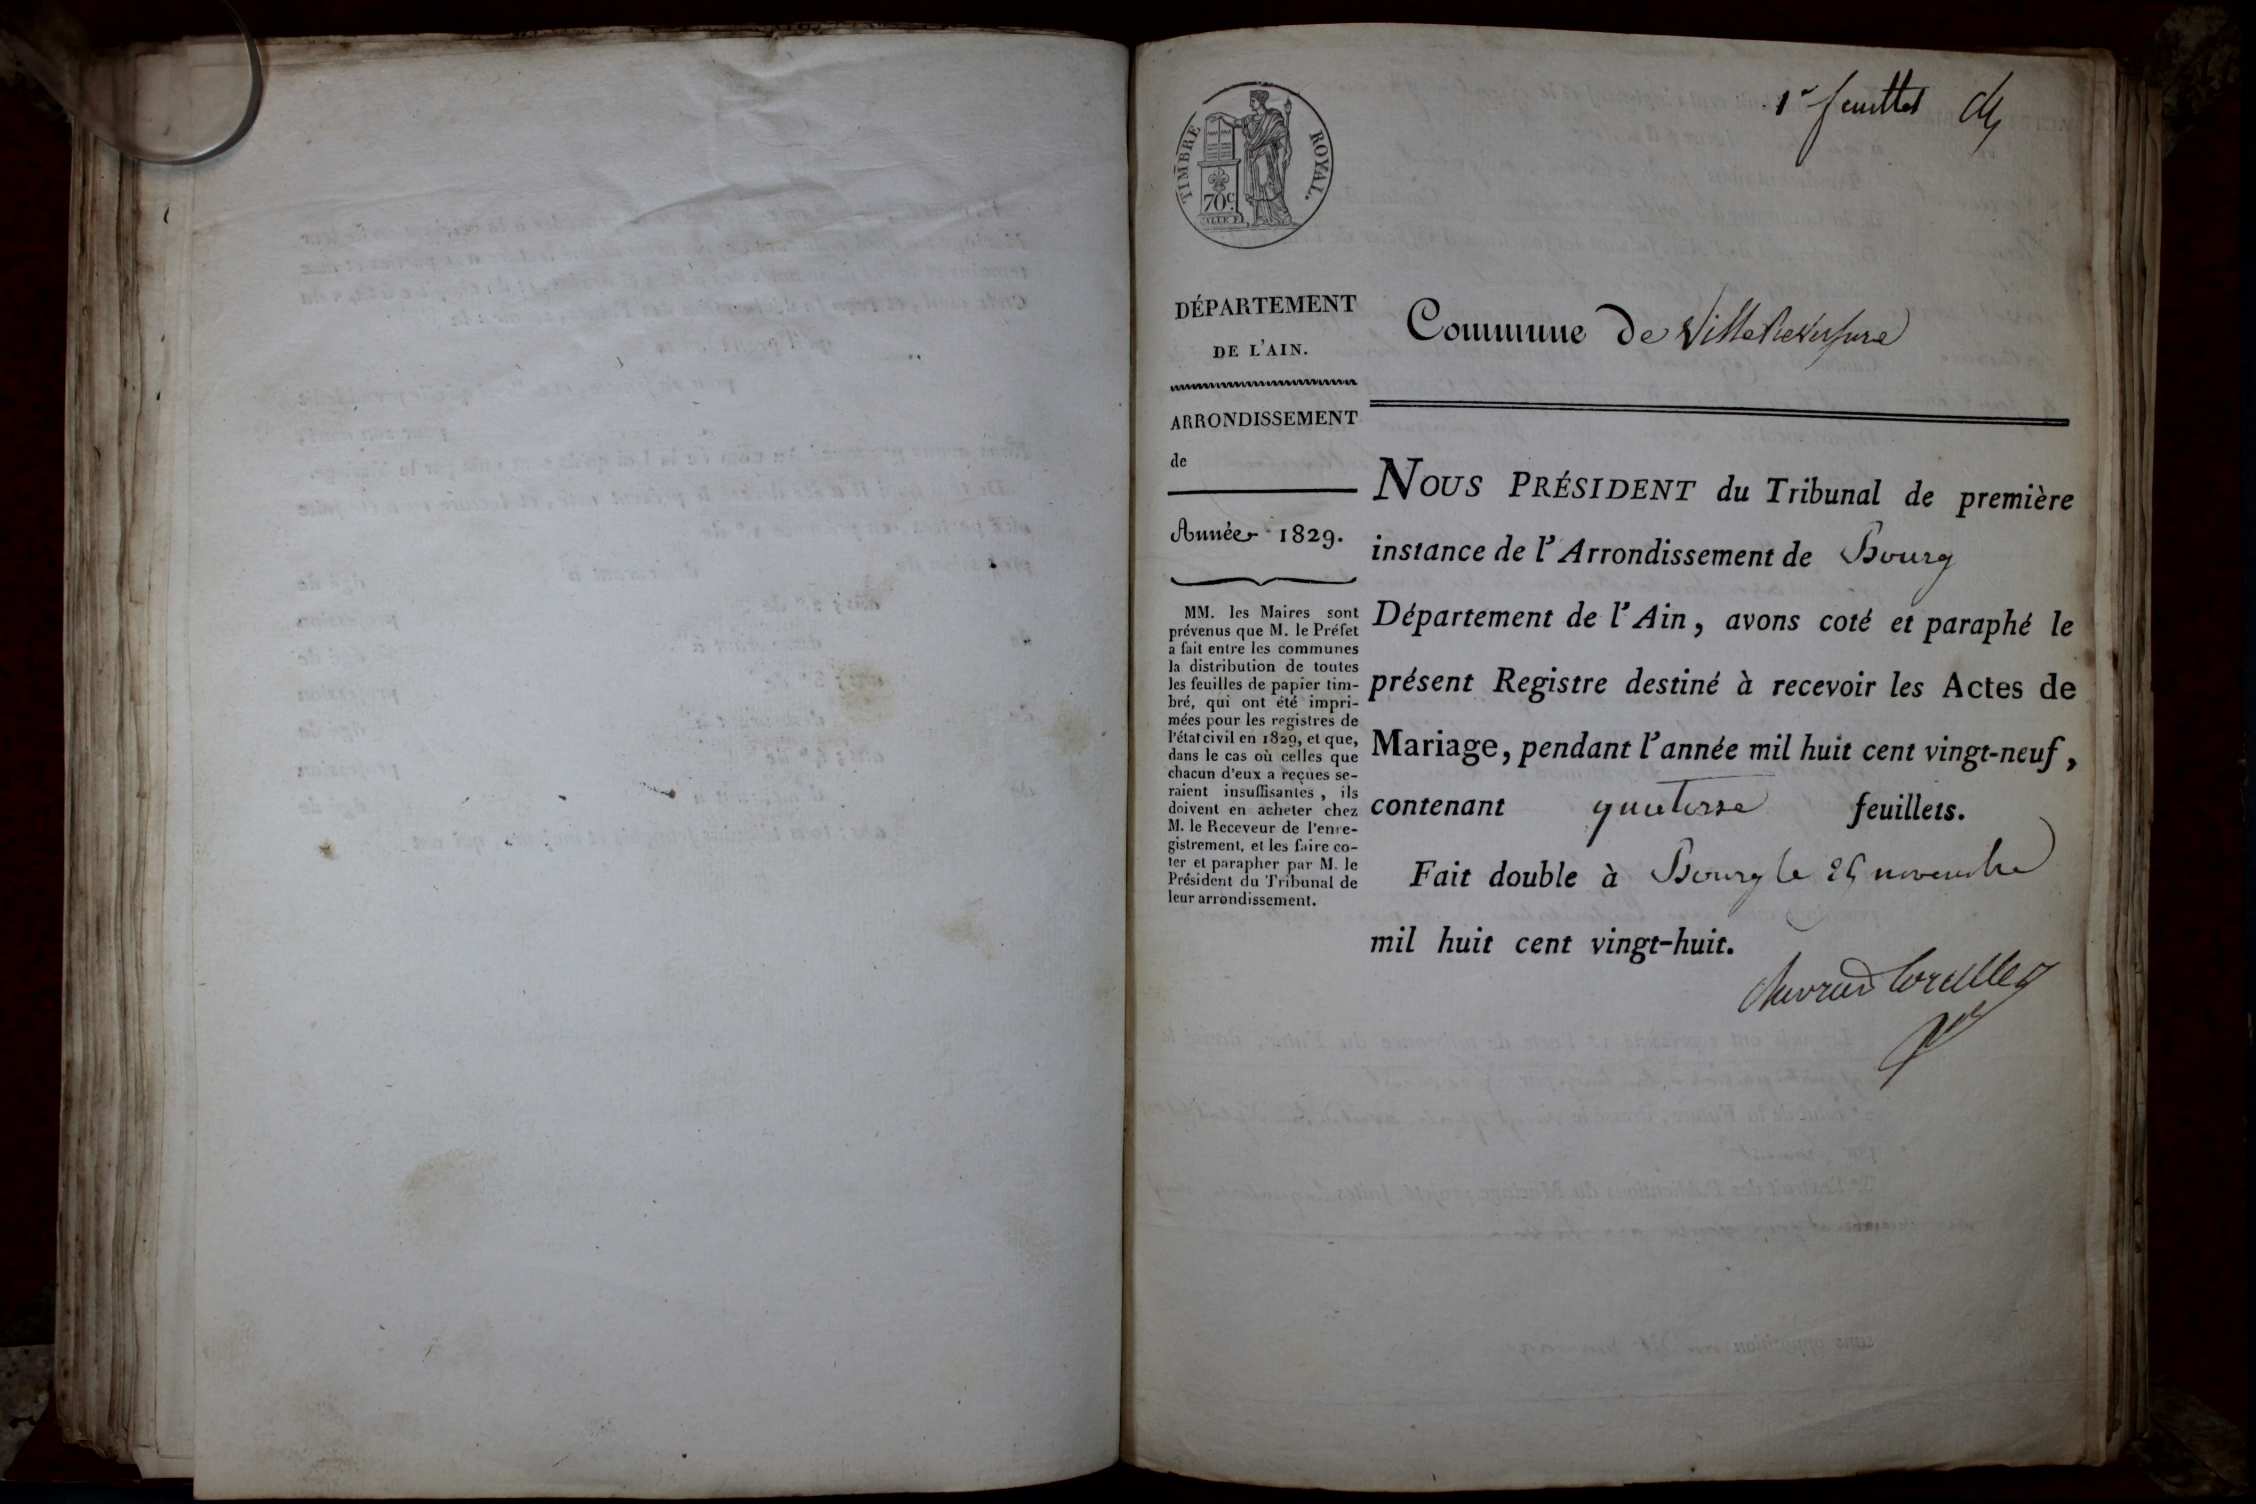 1er feuillet
TIMBRE ROYAL.
70c
DÉPARTEMENT
DE L'AIN.
ARRONDISSEMENT
de
Année 1829.
MM. les Maires sont
prévenus que M. le Préfet
a fait entre les communes
la distribution de toutes
les feuilles de papier tim-
bré, qui ont été impri-
mées pour les registres de
l'état civil en 1829, et que,
dans le cas où celles que
chacun d'eux a reçues se-
raient insuffisantes, ils
doivent en acheter chez
M. le Receveur de l'enre-
gistrement, et les faire co-
ter et parapher par M. le
Président du Tribunal de
leur arrondissement.
Commune de Villereversure
NOUS PRÉSIDENT du Tribunal de première
instance de l'Arrondissement de Bourg
Département de l'Ain, avons coté et paraphé le
présent Registre destiné à recevoir les Actes de
Mariage, pendant l'année mil huit cent vingt-neuf,
contenant quatorze feuillets.
Fait double à Bourg le 25 novembre
mil huit cent vingt-huit.